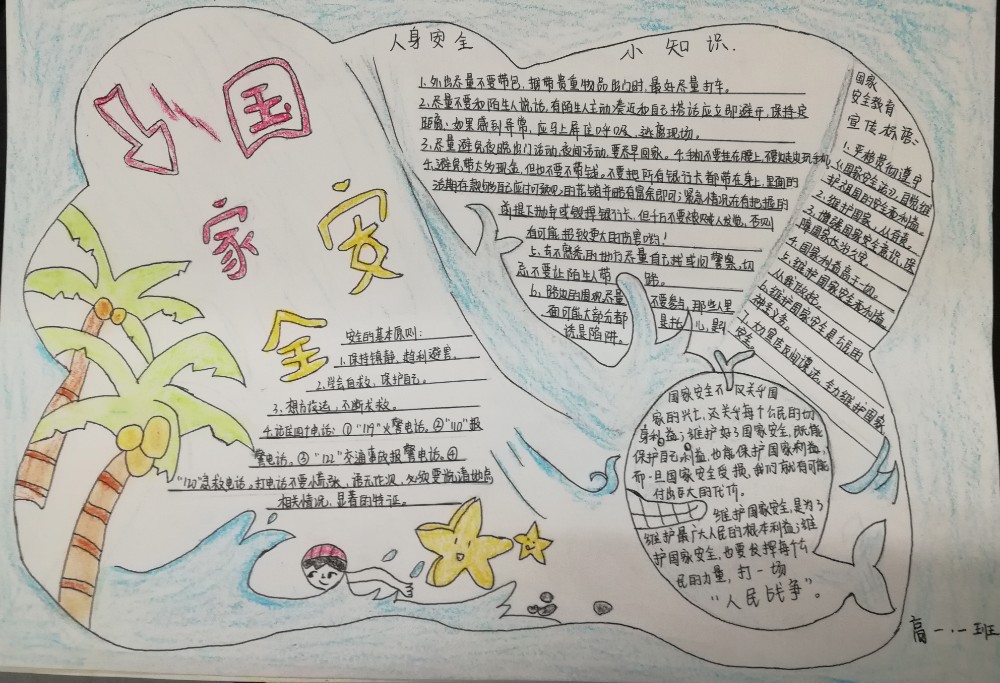 国
家
安
全
安的基本原则:
1.保持镇静,趋利避害.
2.学会自救,保护自己。
3.想方设法,不断求救。
4.记住四个电话:①"119"火警电话。②"110"报
警电话。③"122"交通事故报警电话。④
"120"急救电话。打电话不要慌张、语无伦次,必须要说清地点
相关情况,显著的特征。
人身安全
小知识.
1.外出尽量不要带包,携带贵重物品出门时,最好尽量打车。
2.尽量不要和陌生人说话,有陌生人主动凑近和自己搭话应立即避开,保持定
距离:如果感到异常,应马上屏住呼吸、逃离现场。
3.尽量避免夜晚出门活动,夜间活动,要尽早回家。4.手机不要挂在腰上,不要
4.避免带太多现金,但也不要不带钱。不要把所有银行卡都带在身上,里面的
活期存款够自己应付可预见的花销并略有富余即可;紧急情况在有把握的
前提下抛弃或毁掉银行卡,但千万不要被贼人发觉,否则
有可能招致更大的伤害哟!
5.去不熟悉的地方尽量自己找或问警察。切
忌不要让陌生人带路。
6、路边的围观尽量不要参与,那些人里
面可能大部分都是托儿,是引
诱是陷阱。
国家
安全教育
宣传标语:
1.严格贯彻遵守
《国家安全法》,自觉维
护祖国的安全和利益。
2.维护国家,人人有责。
3.增强国家安全意识,保
障国家长治久安。
4.国家利益高于一切。
5.维护国家安全和利益。
从我做起。
6.维护国家安全是公民
神圣义务。
7.大力宣传反间谍法。全力维护国家
安全。
国家安全不仅关乎国
家的兴亡,还关乎每个公民的切
身利益;维护好了国家安全,既能
保护自己利益,也能保护国家利益,
而一旦国家安全受损,我们都有可能
付出巨大的代价。
维护国家安全,是为了
维护最广大人民的根本利益;维
护国家安全,也要发挥每个公
民的力量,打一场
"人民战争"。
高一.一班